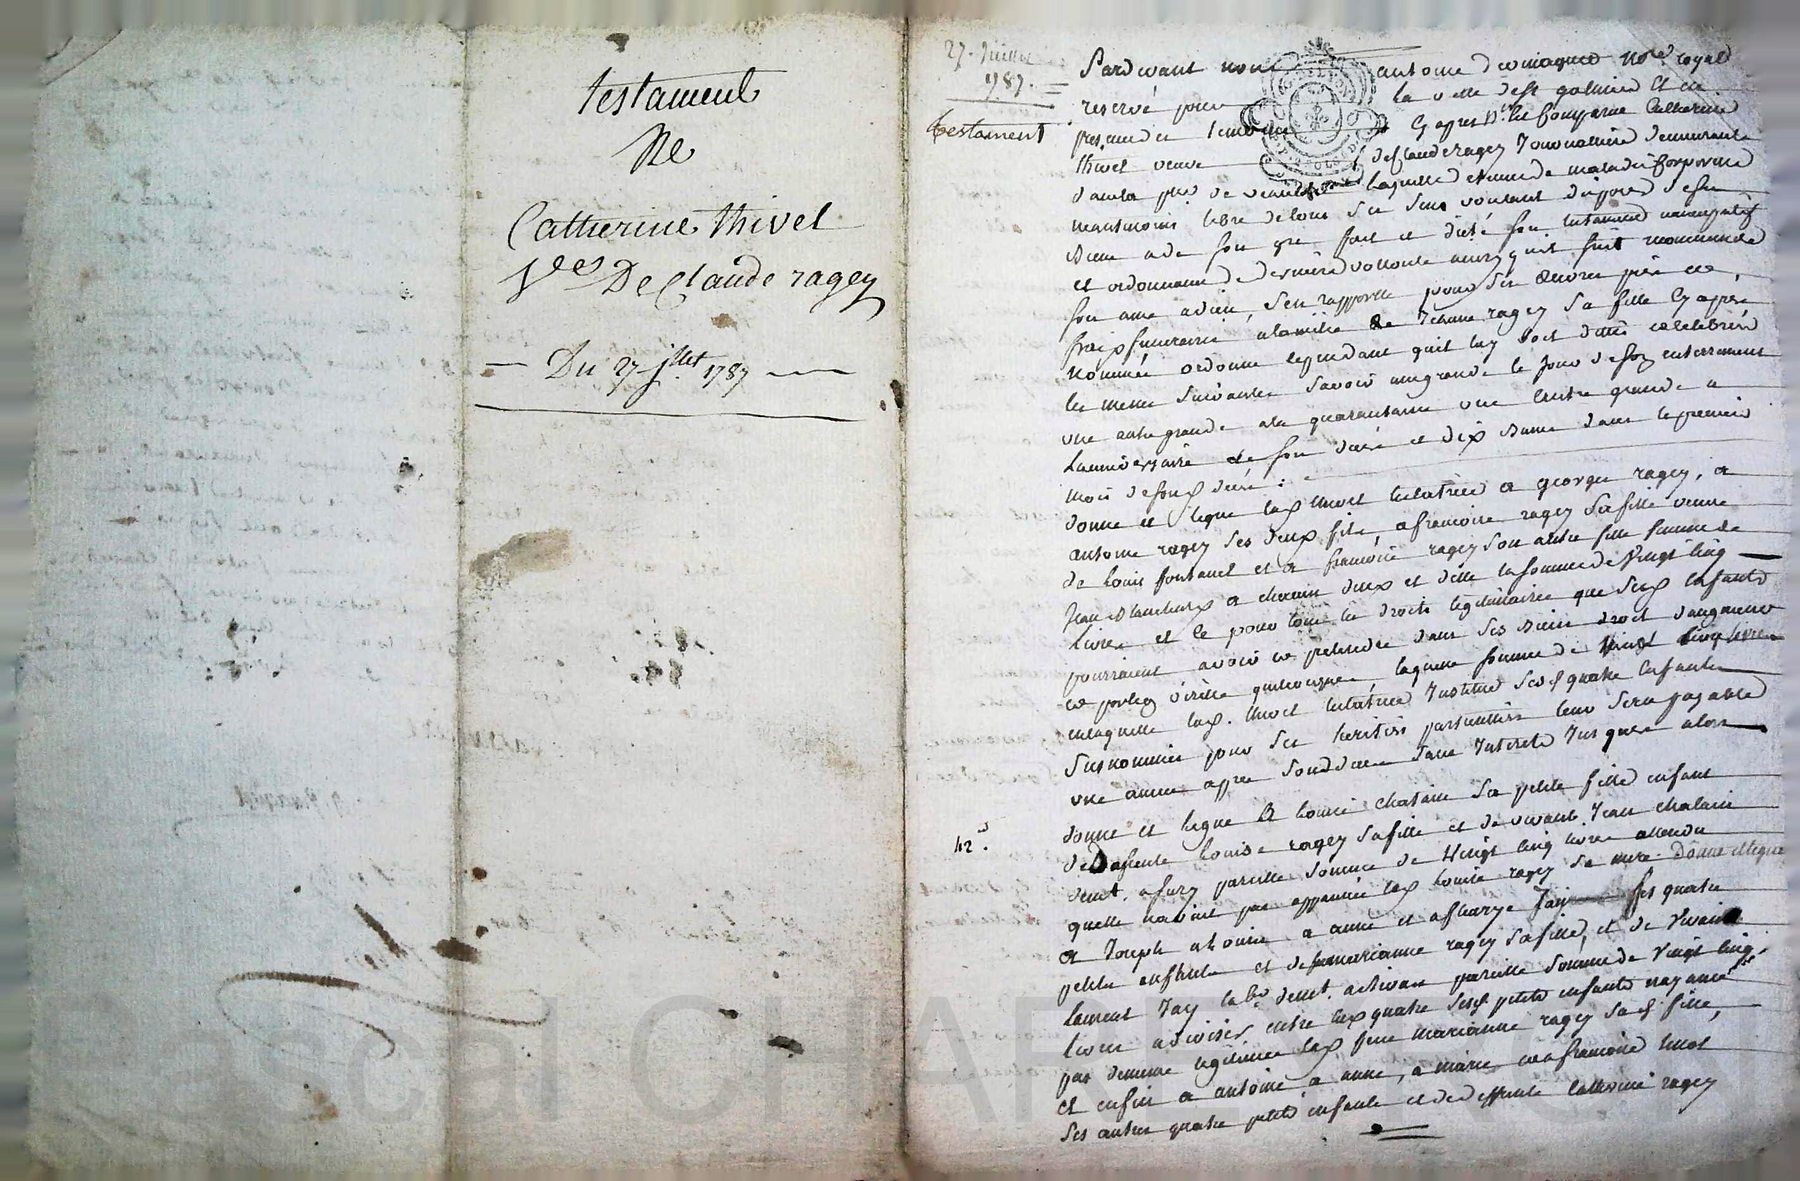 testament
De
Catherine thivel
V.ve De Claude ragey
Du 27 jllet 1787
27. Juillet
1787.
testament
Pardevant nous antoine notre royal
reservé pour la ville de st galmier et en
presence des temoins cy apres Nés est comparue Catherine
thivel veuve de Claude ragey Journallier demeurant
laquelle detenue de maladie corporelle
neantmoins libre de tous ses sens voulant disposer de ses
biens a de son gre fait et dicté son testament nuncupatif
et ordonnance de derniere vollonté ainsy quil suit recommande
son ame a dieu, s'en rapporte pour ses œuvres pies et
frais funeraires a la de Jeanne ragey sa fille cy après
nommée ordonne cependant quil luy soit dittes et celebrées
les messes suivantes savoir une grande le jour de son enterrement
une autre grande a la quarantaine une autre grande a
l'anniversaire de son décès et dix basses dans le premier
mois de son décès :
donne et legue lad. thivel testatrice a george ragey, a
antoine ragey ses deux fils, a francoise ragey sa fille veuve
de louis fontanel et a francoise ragey son autre fille femme de
Jean a chacun deux et delle la somme de vingt cinq
livres et ce pour tous les droits legitimaires que sesd. enfants
pourroient avoir et pretendre dans ses biens droit d'augment
et portion virille quelconque, laquelle somme de vingt cinq livres
en laquelle lad. thivel testatrice institue sesd. quatre enfants
susnommés pour ses heritiers particuliers leur sera payable
une année apres son décès sans interets jusques alors
donne et legue a louise chatain sa petite fille enfant
de deffunte louise ragey sa fille et de vivant Jean chatain
demt. a fury pareille somme de vingt cinq livres attendu
quelle na point pas appannée lad. louise ragey sa mere. Donne et legue
42.
a Joseph a louise a anne et a Jay ses quatre
petits enfants et de marianne ragey sa fille, et de vivant
laurent Jay labr demt. a pareille somme de vingt cinq
livres a diviser entre lesd. quatre sesd. petits enfants nayants
pas de meme legitimée lad. feue marianne ragey sad. fille,
et enfin a antoine a anne, a marie et a francoise
ses autres quatre petits enfants et de deffunte Catherine ragey
Pascal CHAREYRON